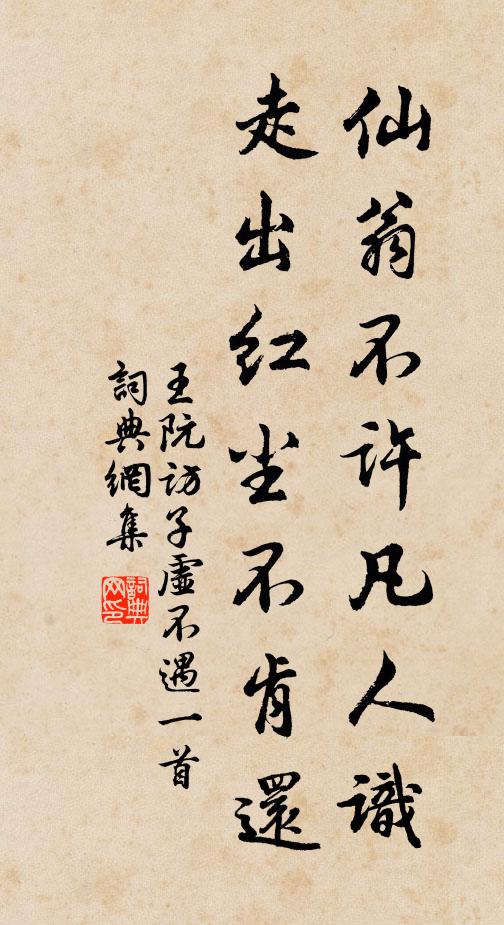 仙翁不许凡人識
走出红尘不肯還
王阮访子虛不遇一首
詞典網集
詞典网印